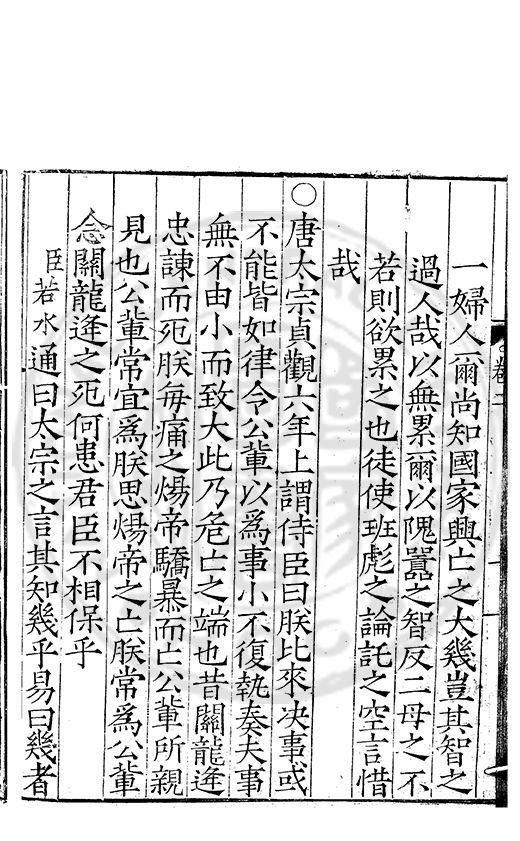 卷二
一婦人爾尚知國家興亡之大幾豈其智之
過人哉以無累爾以隗囂之智反二母之不
若則欲累之也徒使班彪之論託之空言惜
哉
○唐太宗貞觀六年上謂侍臣曰朕比來决事或
不能皆如律令公輩以爲事小不復執奏夫事
無不由小而致大此乃危亡之端也昔關龍逄
忠諫而死朕每痛之煬帝驕暴而亡公輩所親
見也公輩常宜爲朕思煬帝之亡朕常爲公輩
念關龍逄之死何患君臣不相保乎
臣若水通曰太宗之言其知幾乎易曰幾者